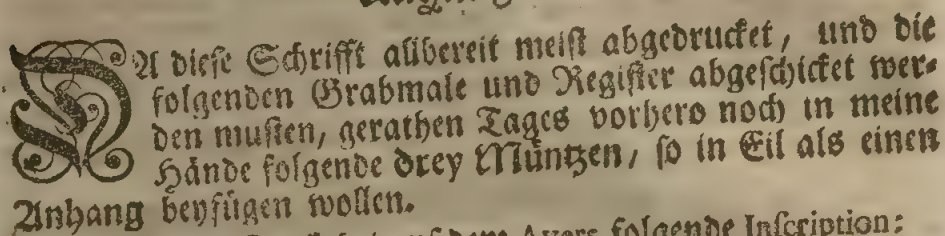 DA diese Schrifft allbereit meist abgedrucket, und die
folgenden Grabmale und Register abgeschicket wer-
den musten, gerathen Tages vorhero noch in meine
Hände folgende drey Müntzen, so in Eil als einen
Anhang beyfügen wollen.
dem Avers folgende Inscription: